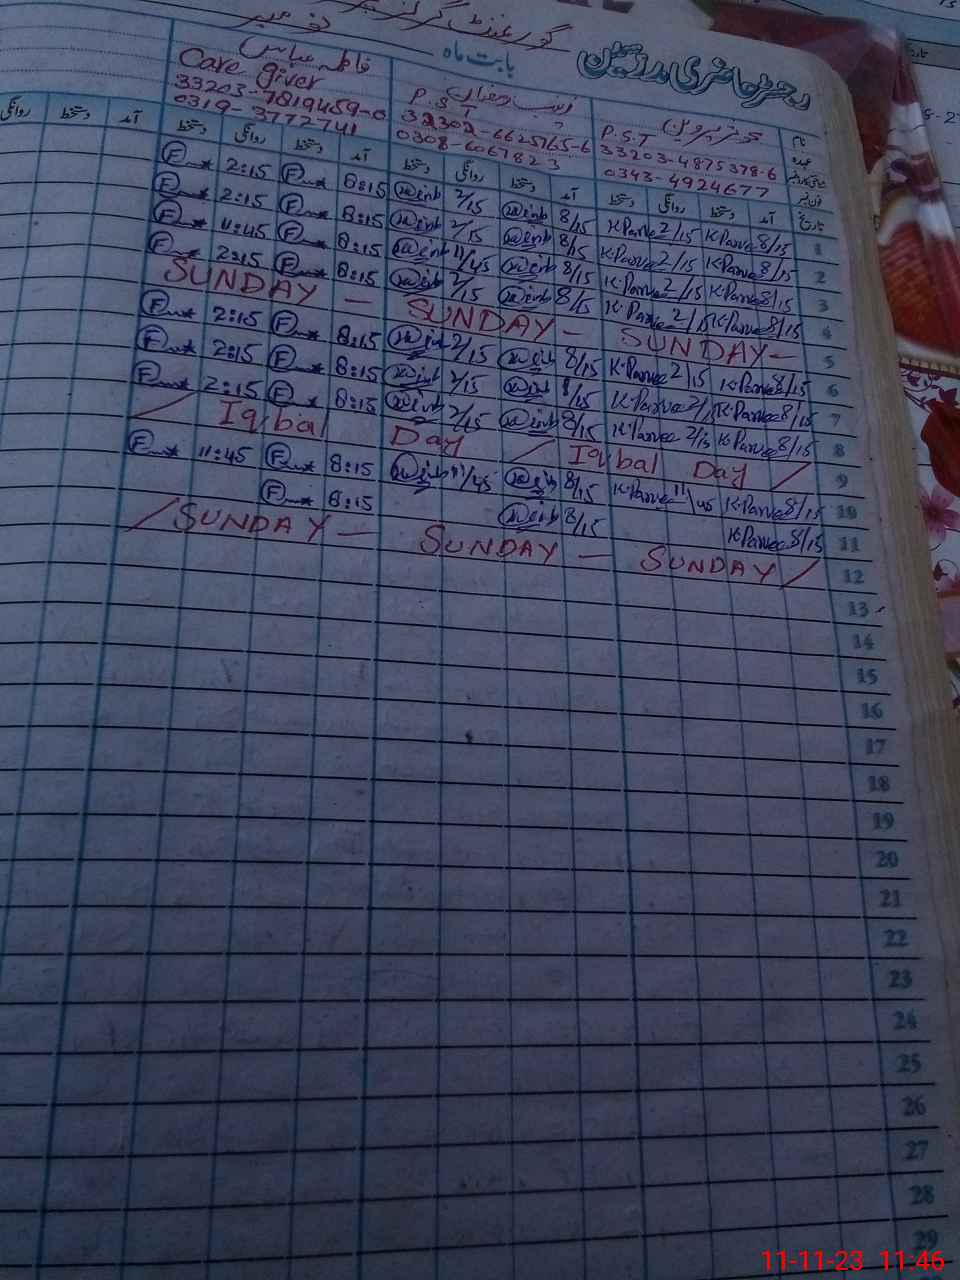 گورنمنٹ گرلز
رجسٹر حاضری مدرسین بابت ماہ نومبر
نام کنیز پروین زینب فاطمہ عباس
عہدہ P.S.T P.S.T Care giver
33203-4875378-6 32302-6625765-6 33203-7819459-0
0343-4924677 0308-6067823 0319-3772741
تاریخ آمد دستخط روانگی دستخط آمد دستخط روانگی دستخط آمد دستخط روانگی دستخط آمد دستخط روانگی
1 8/15 K.Parvee 2/15 K.Parvee 8/15 Zainb 2/15 Zainb 8:15 F 2:15 F
2 8/15 K.Parvee 2/15 K.Parvee 8/15 Zainb 2/15 Zainb 8:15 F 2:15 F
3 8/15 K.Parvee 2/15 K.Parvee 8/15 Zainb 11/45 Zainb 8:15 F 11:45 F
4 8/15 K.Parvee 2/15 K.Parvee 8/15 Zainb 2/15 Zainb 8:15 F 2:15 F
5 SUNDAY - SUNDAY - SUNDAY -
6 8/15 K.Parvee 2/15 K.Parvee 8/15 Zainb 2/15 Zainb 8:15 F 2:15 F
7 8/15 K.Parvee 2/15 K.Parvee 8/15 Zainb 2/15 Zainb 8:15 F 2:15 F
8 8/15 K.Parvee 2/15 K.Parvee 8/15 Zainb 2/15 Zainb 8:15 F 2:15 F
9 / Iqbal Day / Iqbal Day /
10 8/15 K.Parvee 11/45 K.Parvee 8/15 Zainb 11/45 Zainb 8:15 F 11:45 F
11 8/15 K.Parvee 8/15 Zainb 8:15 F
12 / SUNDAY - SUNDAY - SUNDAY /
13
14
15
16
17
18
19
20
21
22
23
24
25
26
27
28
29
11-11-23 11:46